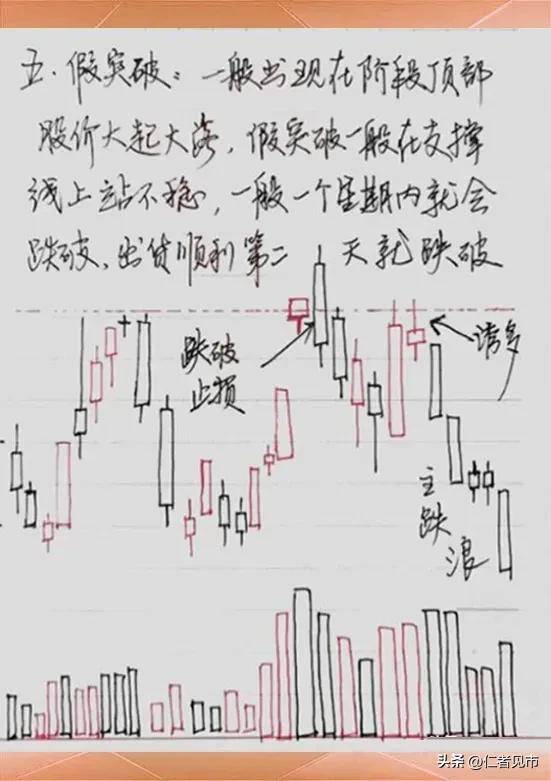 五.假突破:一般出现在阶段顶部
股价大起大落,假突破一般在支撑
线上站不稳,一般一个星期内就会
跌破、出货顺利第二天就跌破
跌破
止损
诱多
主
跌
浪
头条 @仁者见市